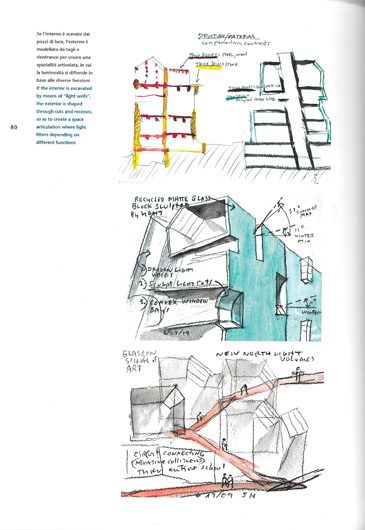 Se l'interno è scavato dai
pozzi di luce, l'esterno è
modellato da tagli e
rientranze per creare una
spazialità articolata, in cui
la luminosità si diffonde in
base alle diverse funzioni
If the interior is excavated
by means of "light wells",
the exterior is shaped
through cuts and recesses,
so as to create a space
articulation where light
filters depending on
different functions
80
STRUCTURE/MATERIAL
COMPLEMENTARY CONTRASTS
RECYCLED MATTE GLASS
BLOCK SCULPTED
BY LIGHT
SUMMER
MAX
WINTER
MIN
1) DRIVEN LIGHT
VOIDS
2) SCULPT/LIGHT CUTS
3) CONVEX WINDOW
BAYS
WINTER
GLASGOW
SCHOOL of
ART
NEW NORTH LIGHT
VOLUMES
CIRCUIT CONNECTING
THRU ENTIRE SCHOOL